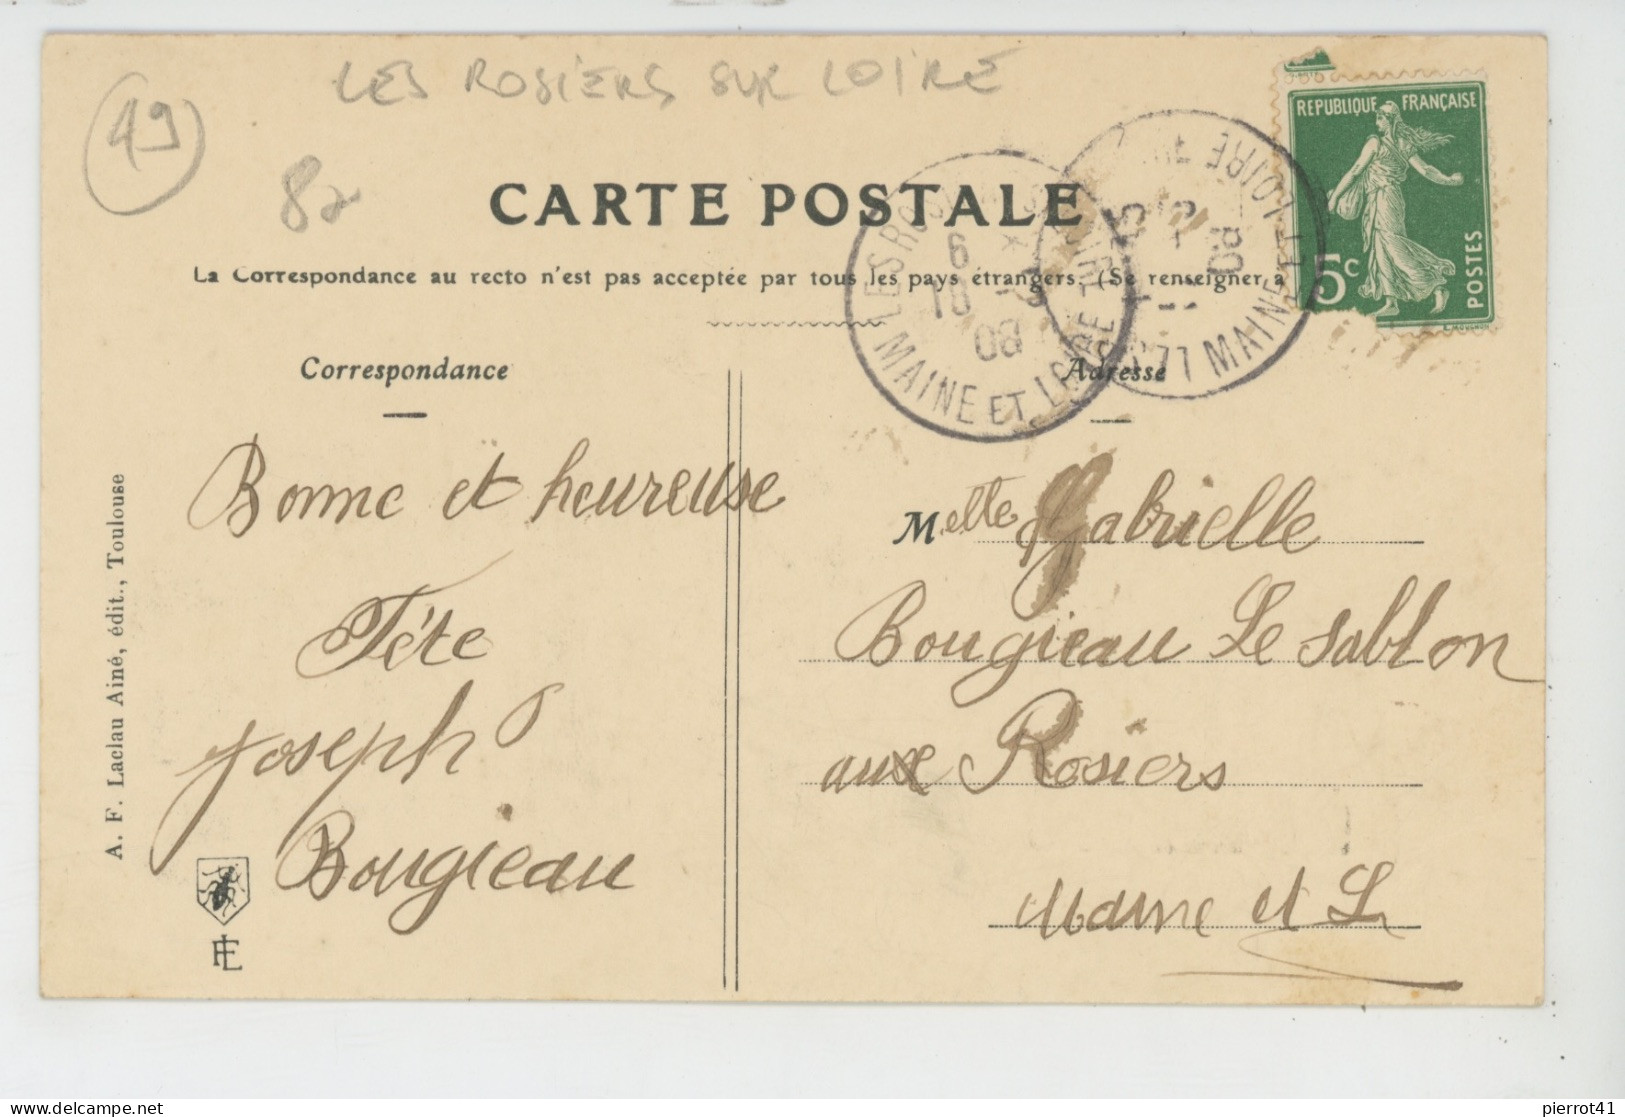 LES ROSIERS SUR LOIRE
49
82
CARTE POSTALE
La Correspondance au recto n'est pas acceptée par tous les pays étrangers. (Se renseigner à
REPUBLIQUE FRANÇAISE
5c
POSTES
MAINE ET LOIRE
08
MAINE ET LOIRE
08
Correspondance
Adresse
Bonne et heureuse
Fête
Joseph
Bougieau
Melle Gabrielle
Bougieau Le Sablon
aux Rosiers
Maine et L
A. F. Laclau Ainé, édit., Toulouse
pierrot41